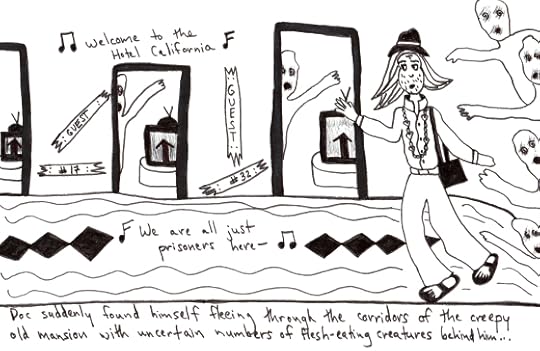 Welcome to the
Hotel California
GUEST
GUEST
#17
#32
We are all just
prisoners here-
Doc suddenly found himself fleeing through the corridors of the creepy
old mansion with uncertain numbers of flesh-eating creatures behind him...